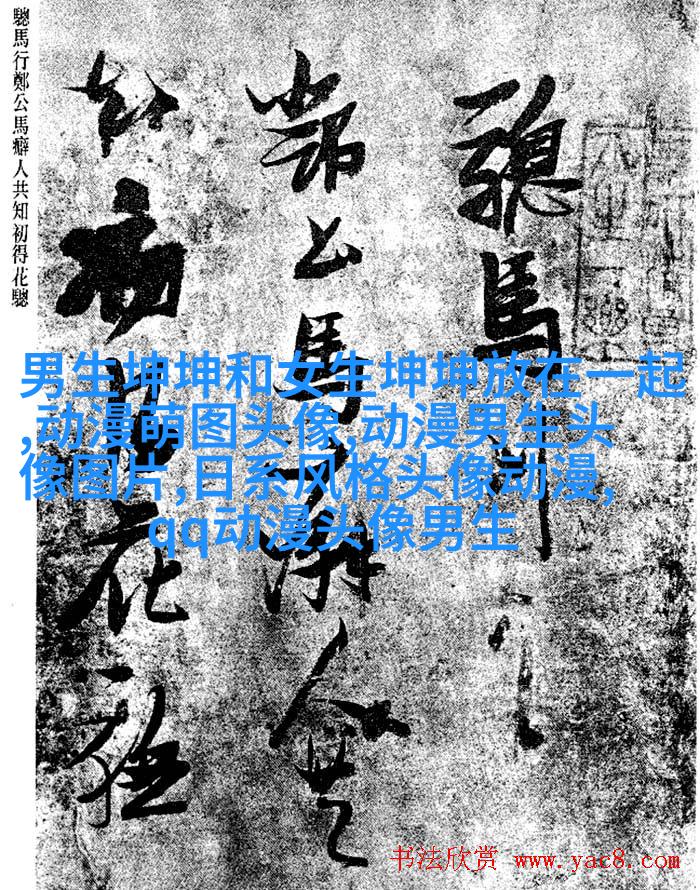 驄馬行
鄭公馬癖人共
知初得花驄
驄馬行鄭公馬癖人共知初得花驄
男生坤坤和女生坤坤放在一起
,动漫萌图头像,动漫男生头
像图片,日系风格头像动漫,
qq动漫头像男生
书法欣赏 www.yac8.com